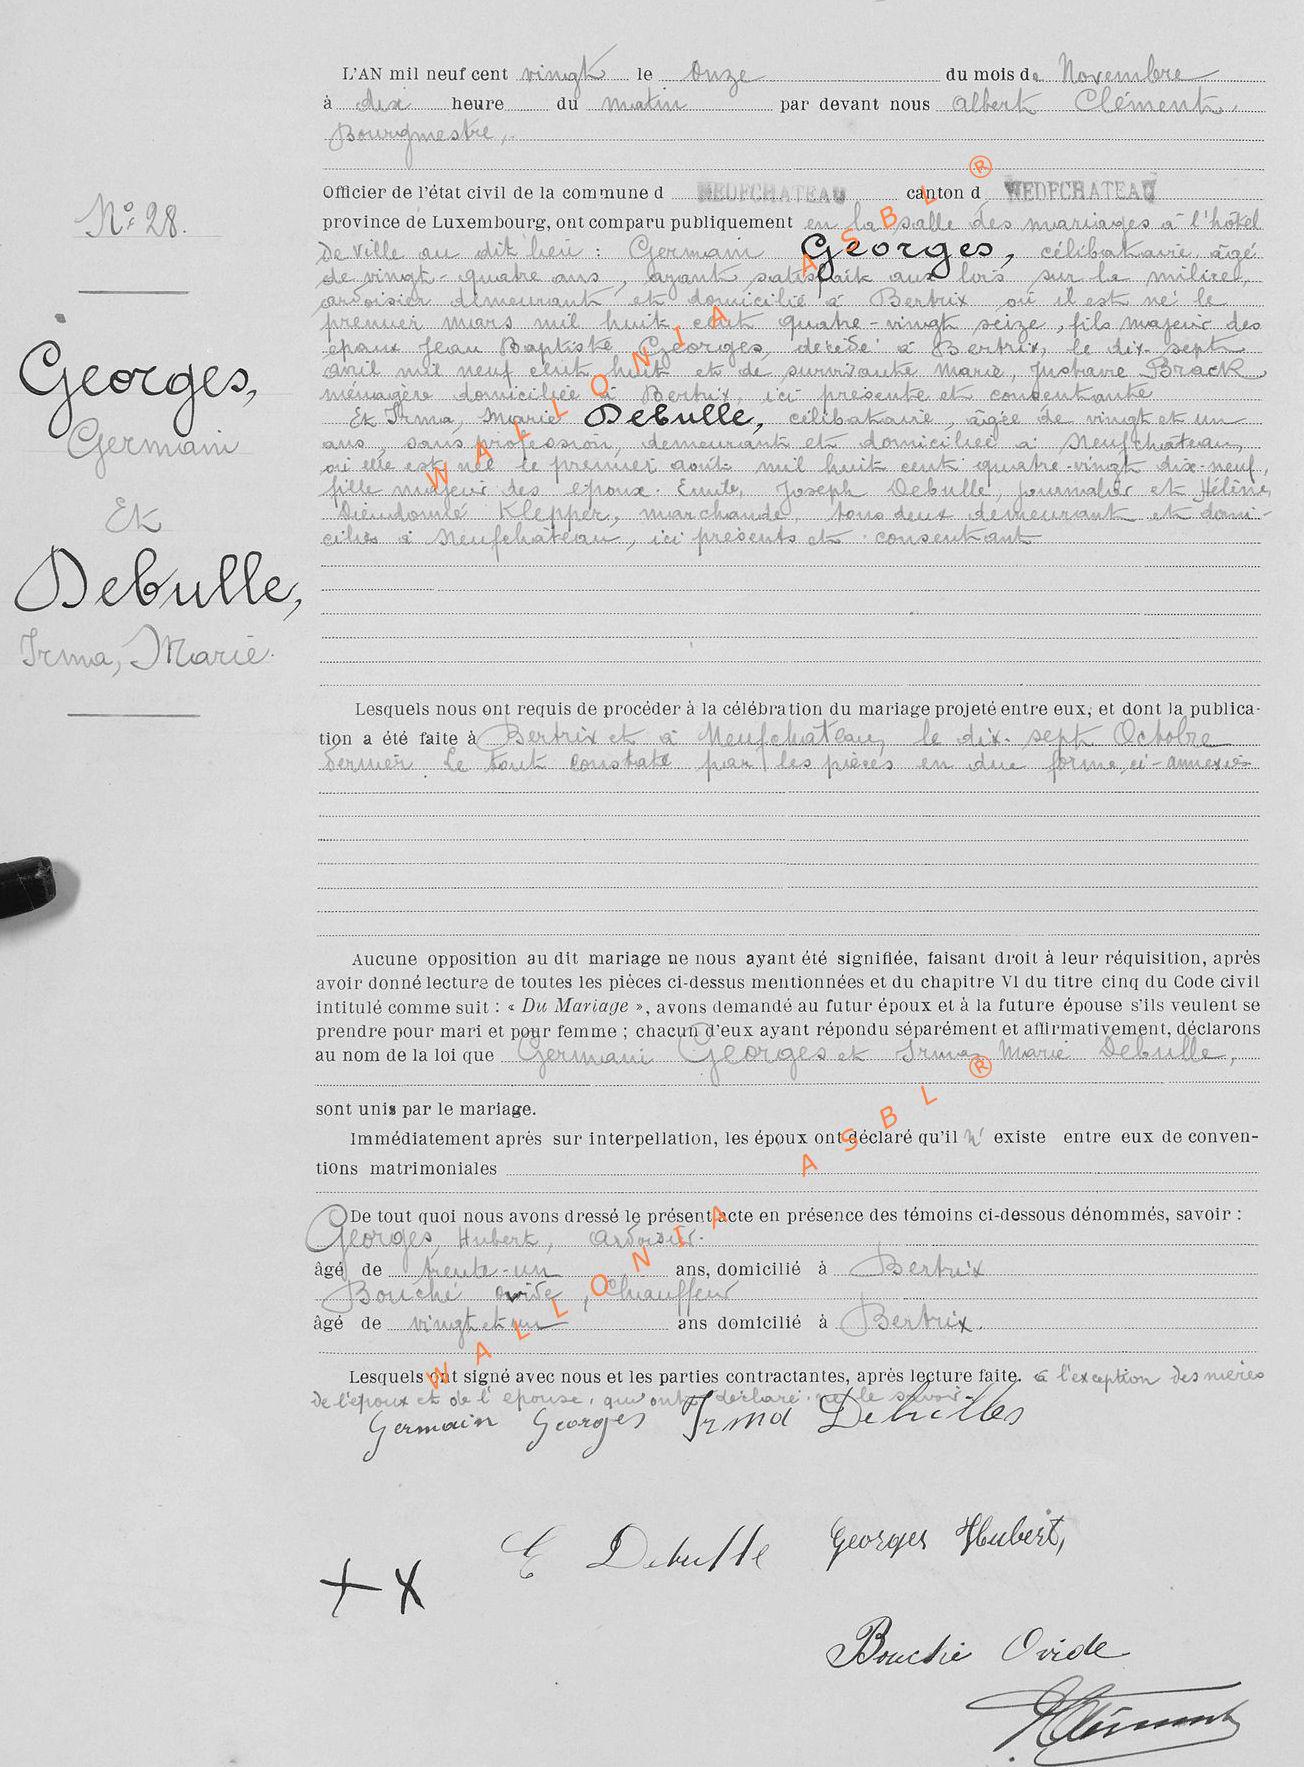 L'AN mil neuf cent vingt le onze du mois de Novembre
à dix heure du matin par devant nous Albert Clément,
Bourgmestre,
Officier de l'état civil de la commune d NEUFCHATEAU canton d NEUFCHATEAU
province de Luxembourg, ont comparu publiquement en la salle des mariages à l'hôtel
de ville au dit lieu : Germain Georges, célibataire âgé
de vingt-quatre ans, ayant satisfait aux lois sur la milice,
ardoisier demeurant et domicilié à Bertrix où il est né le
premier mars mil huit cent quatre-vingt seize, fils majeur des
époux Jean Baptiste Georges, décédé à Bertrix, le dix-sept
avril mil neuf cent huit et de survivante Marie, Justine Brack
ménagère domiciliée à Bertrix, ici présente et consentante
Et Irma, Marie Debulle, célibataire, âgée de vingt et un
ans, sans profession, demeurant et domiciliée à Neufchâteau,
où elle est née le premier août mil huit cent quatre-vingt dix-neuf,
fille majeur des époux Emile, Joseph Debulle, journalier et Hélène
Dieudonné Klepper, marchande, tous deux demeurant et domi-
ciliés à Neufchâteau, ici présents et consentant
N° 28.
Georges,
Germain
Et
Debulle,
Irma, Marie.
Lesquels nous ont requis de procéder à la célébration du mariage projeté entre eux, et dont la publica-
tion a été faite à Bertrix et à Neufchâteau, le dix-sept Octobre
dernier. Le tout constaté par les pièces en due forme, ci-annexées
Aucune opposition au dit mariage ne nous ayant été signifiée, faisant droit à leur réquisition, après
avoir donné lecture de toutes les pièces ci-dessus mentionnées et du chapitre VI du titre cinq du Code civil
intitulé comme suit : « Du Mariage », avons demandé au futur époux et à la future épouse s'ils veulent se
prendre pour mari et pour femme ; chacun d'eux ayant répondu séparément et affirmativement, déclarons
au nom de la loi que Germain Georges et Irma Marie Debulle,
sont unis par le mariage.
Immédiatement après sur interpellation, les époux ont déclaré qu'il n' existe entre eux de conven-
tions matrimoniales
De tout quoi nous avons dressé le présent acte en présence des témoins ci-dessous dénommés, savoir :
Georges, Hubert, ardoisier.
âgé de trente-un ans, domicilié à Bertrix
Bouché Ovide, Chauffeur
âgé de vingt et un ans domicilié à Bertrix.
Lesquels ont signé avec nous et les parties contractantes, après lecture faite. à l'exception des mères
de l'époux et de l'épouse, qui ont déclaré ne le savoir.
Germain Georges Irma Debulles
E Debulle Georges Hubert,
++
Bouché Ovide
AClément
WALLONIA ASBL ®
WALLONIA ASBL ®